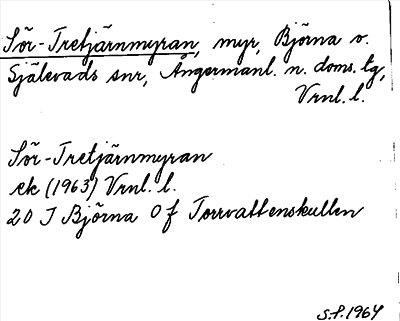 Sör-Tretjärnmyran, myr, Björna s.
Själevads snr, Ångermanl. n. doms. tg,
Vrnl. l.
Sör-Tretjärnmyran
ek (1963) Vrnl. l.
20 J Björna 0 f Torrvattenskullen
S.P. 1964